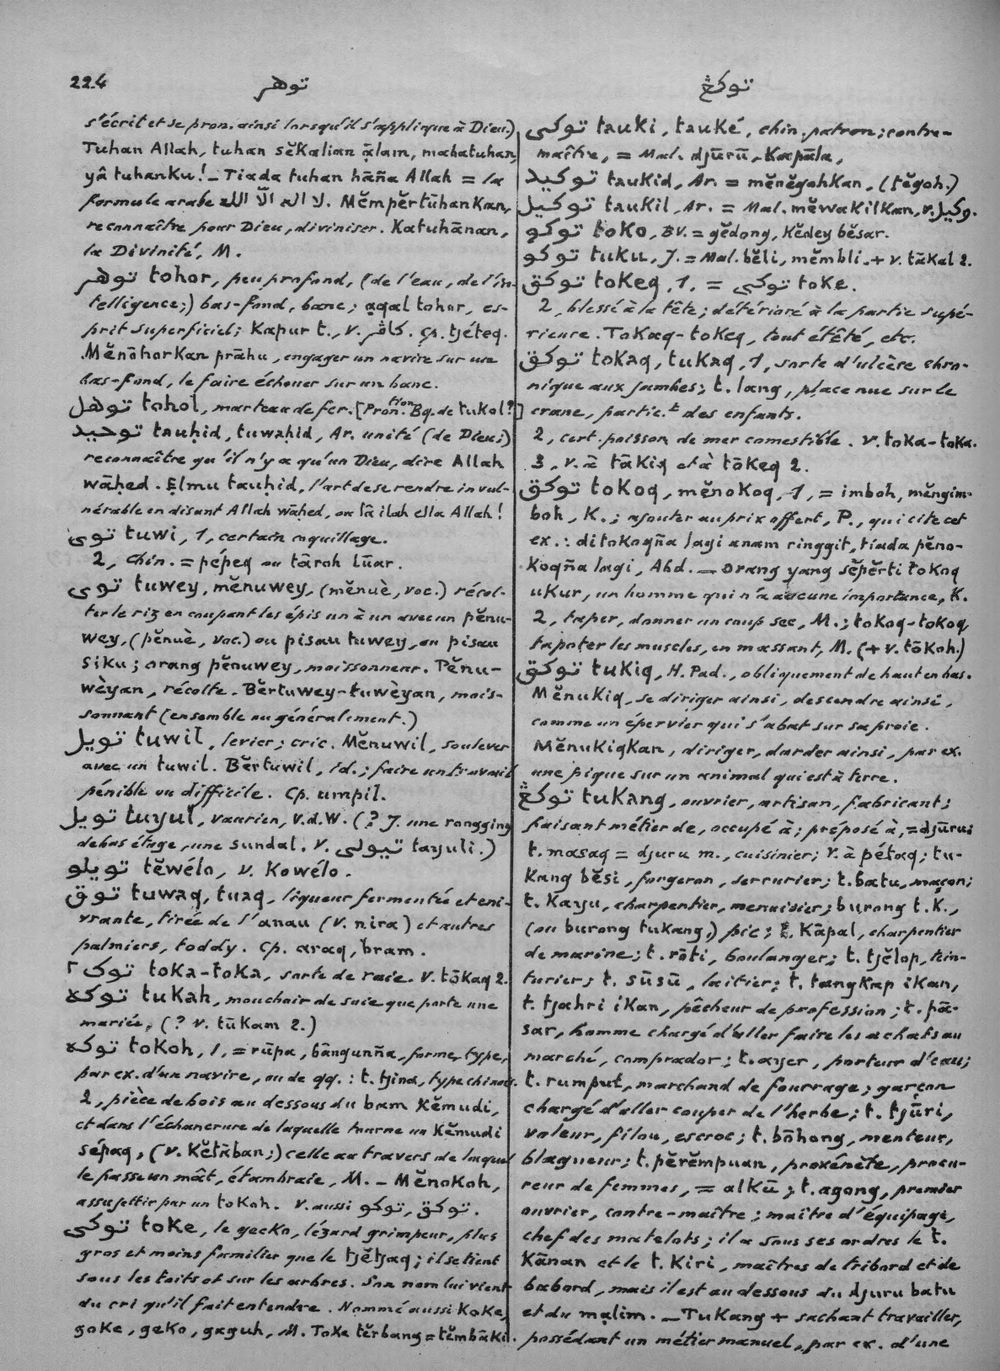 224
توهر
توكڠ
s'écrit et se pron. ainsi lorsqu'il s'applique à Dieu.)
Tuhan Allah, tuhan sĕkalian ālam, mahatuhan,
yâ tuhanku! – Tiada tuhan hāña Allah = la
formule arabe لا اله الّا الله. Mĕmpĕrtūhankan,
reconnaître pour Dieu, diviniser. Katuhānan,
la Divinité, M.
توهر tohor, peu profond, (de l'eau, de l'in-
telligence;) bas-fond, banc; aqal tohor, es-
prit superficiel; Kapur t., v. كاڤر. Cp. tjéteq.
Mĕnōhorkan prāhu, engager un navire sur un
bas-fond, le faire échouer sur un banc.
توهل tohol, marteau de fer. [Prontion. Bq. de tukol?]
توحيد tauḥid, tuwaḥid, Ar. unité (de Dieu;)
reconnaître qu'il n'y a qu'un Dieu, dire Allah
wāḥed. Elmu tauḥid, l'art de se rendre invul-
nérable en disant Allah wāḥed, ou lā ilah ella Allah!
توى tuwi, 1, certain coquillage.
2, Chin. = pépeq ou tāroh lūar.
توى tuwey, mĕnuwey, (mĕnuè, voc.) récol-
ter le riz en coupant les épis un à un avec un pĕnu-
wey, (pĕnuè, voc.) ou pisau tuwey, ou pisau
siku; orang pĕnuwey, moissonneur. Pĕnu-
wèyan, récolte. Bĕrtuwey-tuwèyan, mois-
sonnant (ensemble ou généralement.)
تويل tuwil, levier; cric. Mĕnuwil, soulever
avec un tuwil. Bĕrtuwil, id.; faire un travail
pénible ou difficile. Cp. umpil.
تويل tuyul, vaurien, v.d.W. (? J. une rongging
de bas étage, une sundal. v. تيولى tayuli.)
تويلو tĕwélo, v. Kowélo.
توق tuwaq, tuaq, liqueur fermentée et eni-
vrante, tirée de l'anau (v. nira) et autres
palmiers, toddy. Cp. araq, bram.
توك٢ toka-toka, sorte de raie. v. tōkaq 2.
توكه tukah, mouchoir de soie que porte une
mariée, (? v. tūkam 2.)
توكه tokoh, 1, = rūpa, bāngunña, forme, type,
par ex. d'un navire, ou de qq. : t. tjina, type chinois.
2, pièce de bois au dessous du bam kĕmudi,
et dans l'échancrure de laquelle tourne un kĕmudi
sépaq, (v. Kĕtāban;) celle au travers de laquel
le passe un mât, étambraie, M. – Mĕnokoh,
assujettir par un tokoh. v. aussi توكو, توكق.
توكى toke, le gecko, lézard grimpeur, plus
gros et moins familier que le tjĕtjaq; il se tient
sous les toits et sur les arbres. Son nom lui vient
du cri qu'il fait entendre. Nommé aussi koke,
goke, geko, gaguh, M. Toke tĕrbang = tĕmbākil.
توكى tauki, tauké, chin. patron; contre-
maître, = Mal. djūrū, kapāla,
توكيد taukid, Ar. = mĕnĕgahkan, (tĕgoh.)
توكيل taukil, Ar. = Mal. mĕwakilkan, v. وكيل.
توكو toko, BV. = gĕdong, kĕdey bĕsar.
توكو tuku, J. = Mal. bĕli, mĕmbli. + v. tākal 2.
توكق tokeq, 1, = توكى toke.
2, blessé à la tête; détérioré à la partie supé-
rieure. Tokaq-tokeq, tout étêté, etc.
توكق tokaq, tukaq, 1, sorte d'ulcère chro-
nique aux jambes; t. lang, place nue sur le
crane, partic.t des enfants.
2, cert. poisson de mer comestible. v. toka-toka.
3, v. à tākiq et à tōkeq 2.
توكق tokoq, mĕnokoq, 1, = imboh, mĕngim-
boh, K.; ajouter au prix offert, P., qui cite cet
ex. : ditokoqña lagi anam ringgit, tiada pĕno-
koqña lagi, Abd. – Orang yang sĕpĕrti tokoq
ukur, un homme qui n'a aucune importance, K.
2, taper, donner un coup sec, M.; tokoq-tokoq
tapoter les muscles, en massant, M. (+ v. tōkoh.)
توكق tukiq, H. Pad., obliquement de haut en bas.
Mĕnukiq, se diriger ainsi, descendre ainsi,
comme un épervier qui s'abat sur sa proie.
Mĕnukiqkan, diriger, darder ainsi, par ex.
une pique sur un animal qui est à terre.
توكڠ tukang, ouvrier, artisan, fabricant;
faisant métier de, occupé à; préposé à, = djūru;
t. masaq = djuru m., cuisinier; v. à pétaq; tu-
kang bĕsi, forgeron, serrurier; t. batu, maçon;
t. kayu, charpentier, menuisier; burong t. k.,
(ou burong tukang,) pic; t. kāpal, charpentier
de marine; t. rōti, boulanger; t. tjĕlop, tein-
turier; t. sūsū, laitier; t. tangkap ikan,
t. tjahri ikan, pêcheur de profession; t. pā-
sar, homme chargé d'aller faire les achats au
marché, comprador; t. ayer, porteur d'eau;
t. rumput, marchand de fourrage; garçon
chargé d'aller couper de l'herbe; t. tjūri,
voleur, filou, escroc; t. bōhong, menteur,
blagueur; t. pĕrĕmpuan, proxénète, procu-
reur de femmes, = alkū; t. agong, premier
ouvrier, contre-maître; maître d'équipage,
chef des matelots; il a sous ses ordres le t.
kānan et le t. kiri, maîtres de tribord et de
babord, mais il est au dessous du djuru batu
et du malim. – Tukang + sachant travailler,
possédant un métier manuel, par ex. d'une